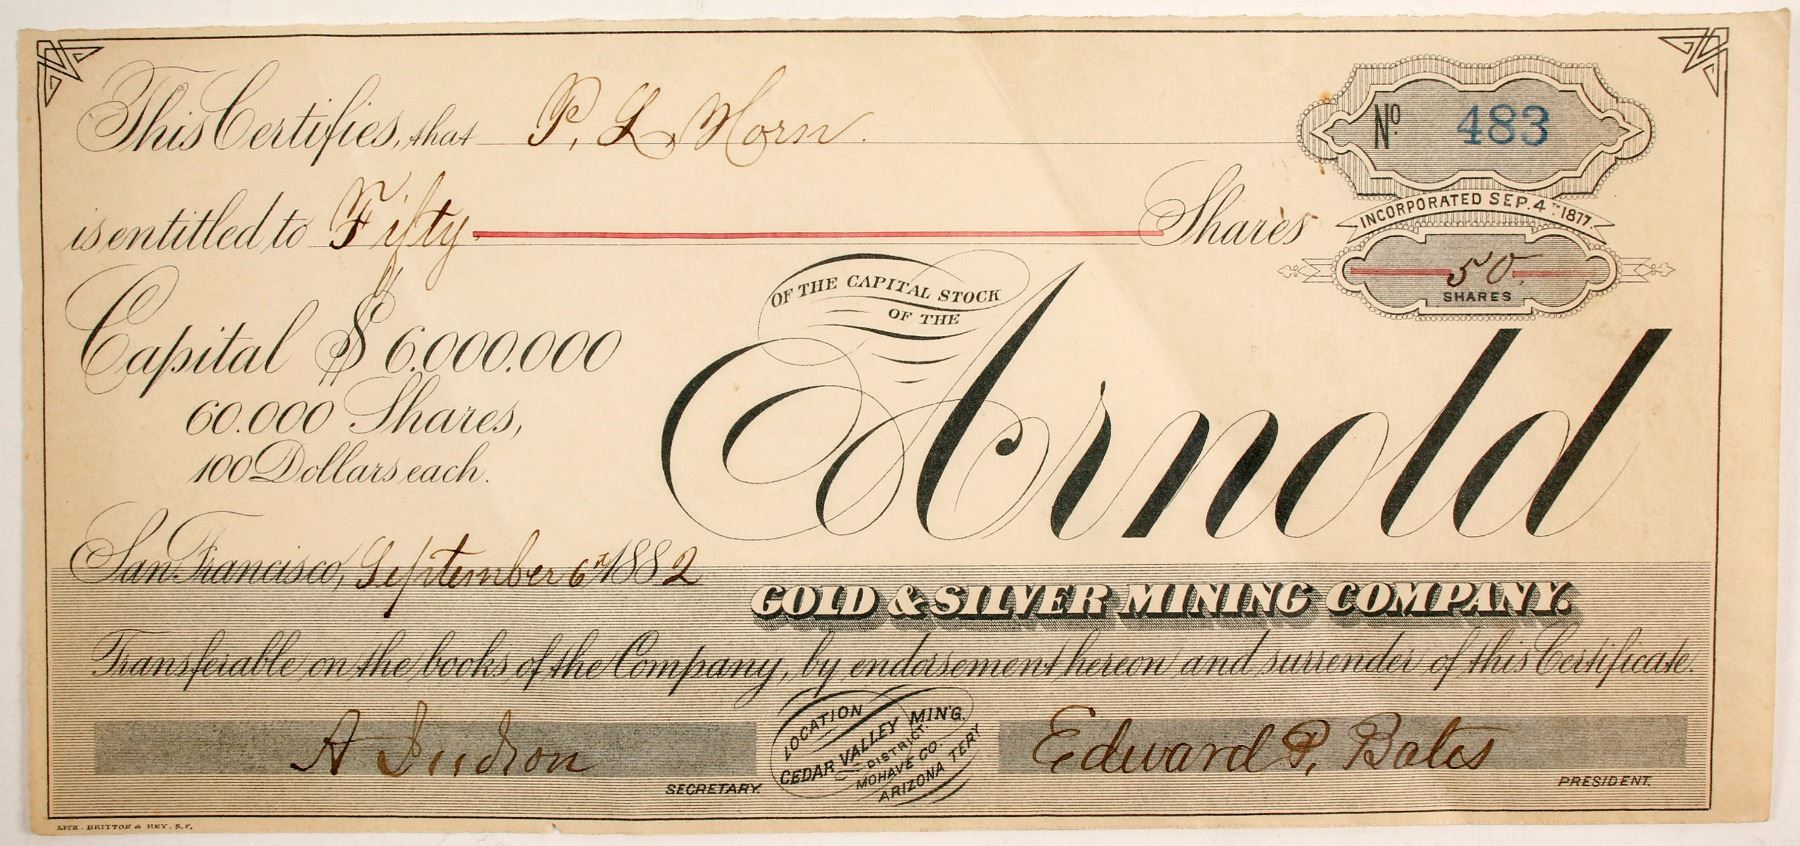 This Certifies, that P. L. Horn.
No. 483
is entitled to Fifty Shares
INCORPORATED SEP. 4TH 1877.
50.
SHARES
OF THE CAPITAL STOCK
OF THE
Capital $6.000.000
60.000 Shares,
100 Dollars each.
Arnold
San Francisco, September 6th 1882
GOLD & SILVER MINING COMPANY.
Transferable on the books of the Company, by endorsement hereon and surrender of this Certificate.
A Judson
SECRETARY.
LOCATION
CEDAR VALLEY MIN'G.
DISTRICT.
MOHAVE CO.
ARIZONA TERY
Edward P. Bates
PRESIDENT.
LITH. BRITTON & REY. S.F.